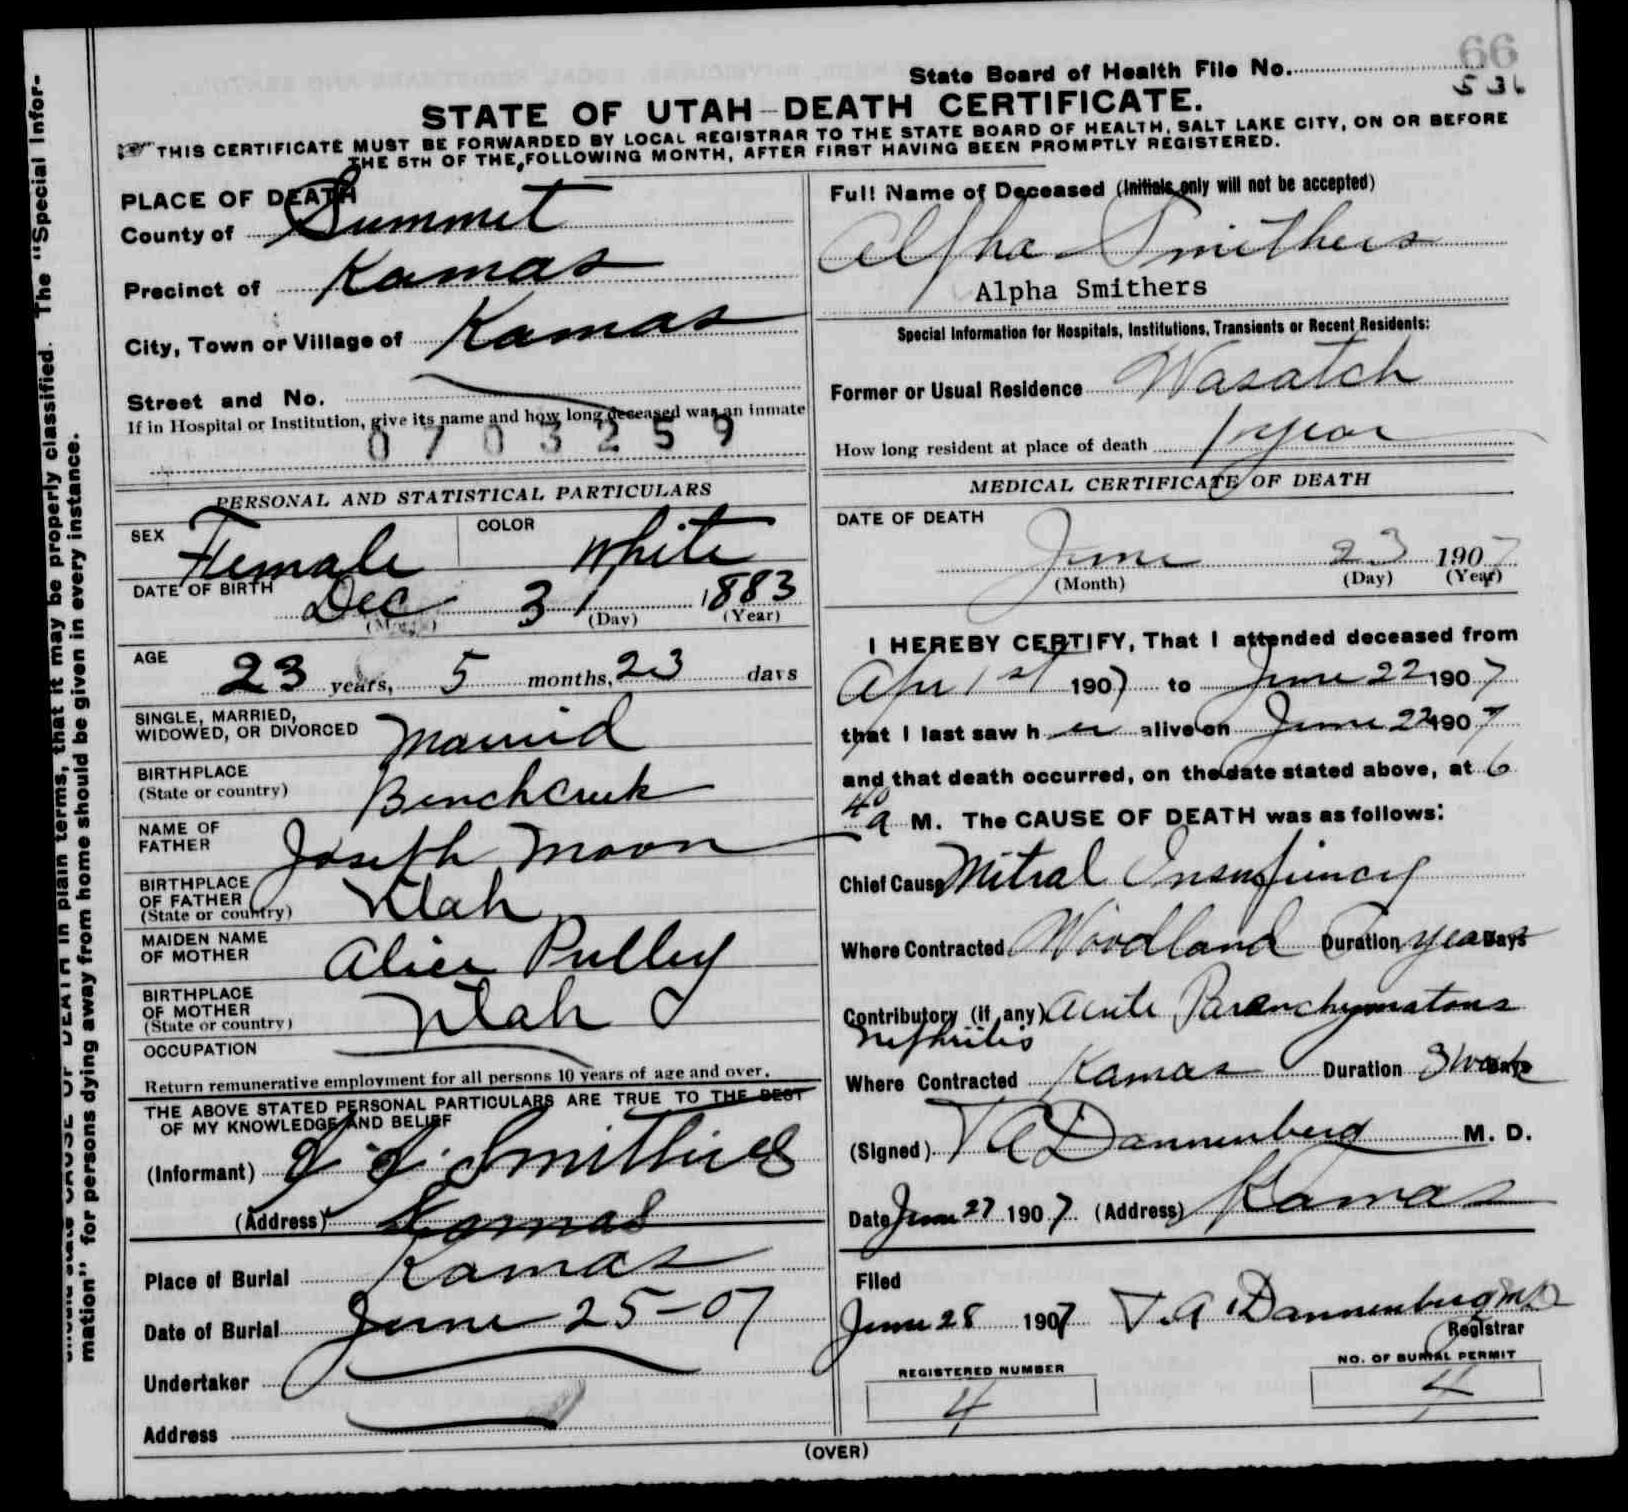 66
State Board of Health File No. 536
STATE OF UTAH—DEATH CERTIFICATE.
THIS CERTIFICATE MUST BE FORWARDED BY LOCAL REGISTRAR TO THE STATE BOARD OF HEALTH, SALT LAKE CITY, ON OR BEFORE
THE 5TH OF THE FOLLOWING MONTH, AFTER FIRST HAVING BEEN PROMPTLY REGISTERED.
PLACE OF DEATH
County of Summit
Precinct of Kamas
City, Town or Village of Kamas
Street and No.
If in Hospital or Institution, give its name and how long deceased was an inmate
0703259
PERSONAL AND STATISTICAL PARTICULARS
SEX Female COLOR White
DATE OF BIRTH Dec 31 1883
(Month) (Day) (Year)
AGE 23 years, 5 months, 23 days
SINGLE, MARRIED,
WIDOWED, OR DIVORCED Married
BIRTHPLACE
(State or country) Benchcreek
NAME OF
FATHER Joseph Moon
BIRTHPLACE
OF FATHER
(State or country) Utah
MAIDEN NAME
OF MOTHER Alice Pulley
BIRTHPLACE
OF MOTHER
(State or country) Utah
OCCUPATION
Return remunerative employment for all persons 10 years of age and over.
THE ABOVE STATED PERSONAL PARTICULARS ARE TRUE TO THE BEST
OF MY KNOWLEDGE AND BELIEF
(Informant) Smithies
(Address) Kamas
Place of Burial Kamas
Date of Burial June 25-07
Undertaker
Address
Full Name of Deceased (Initials only will not be accepted)
Alpha Smithers
Alpha Smithers
Special Information for Hospitals, Institutions, Transients or Recent Residents:
Former or Usual Residence Wasatch
How long resident at place of death 1 year
MEDICAL CERTIFICATE OF DEATH
DATE OF DEATH
June 23 1907
(Month) (Day) (Year)
I HEREBY CERTIFY, That I attended deceased from
Apr 1st 1907 to June 22 1907
that I last saw her alive on June 22 1907
and that death occurred, on the date stated above, at 6
40 a M. The CAUSE OF DEATH was as follows:
Chief Cause Mitral Insufficiency
Where Contracted Woodland Duration years Days
Contributory (if any) acute Parenchymatous
Nephritis
Where Contracted Kamas Duration 3 weeks Days
(Signed) T A Dannenberg M. D.
Date June 27 1907 (Address) Kamas
Filed
June 28 1907 T. A. Dannenberg MD
Registrar
REGISTERED NUMBER
4
NO. OF BURIAL PERMIT
4
(OVER)
should state CAUSE OF DEATH in plain terms, that it may be properly classified. The "Special Infor-
mation" for persons dying away from home should be given in every instance.